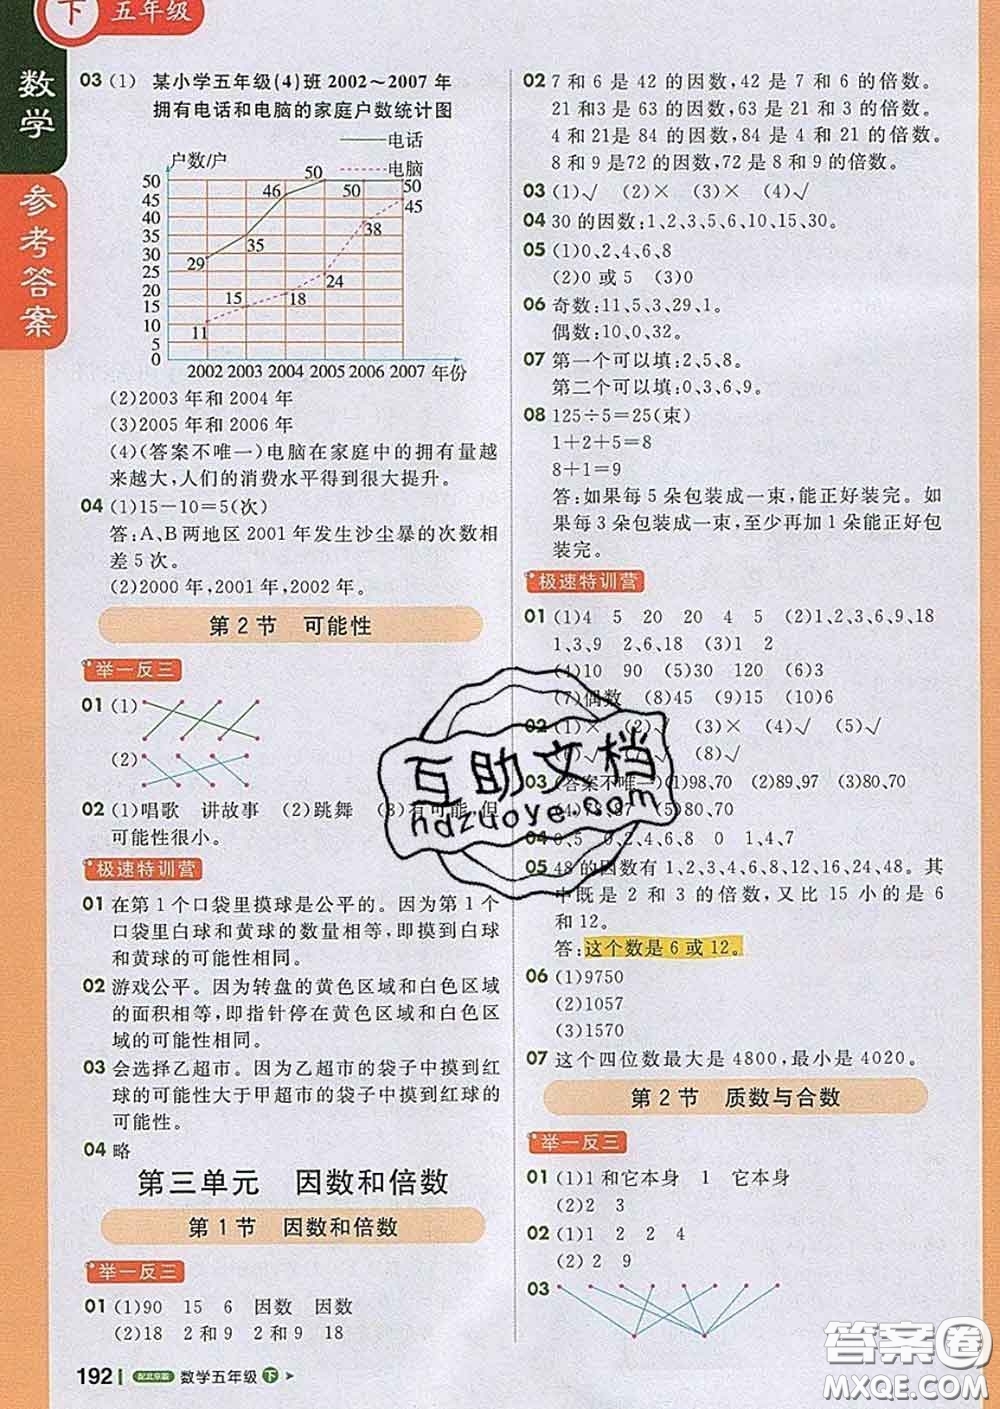 下 五年级
数学
参考答案
03 (1) 某小学五年级(4)班 2002～2007 年
拥有电话和电脑的家庭户数统计图
电话
户数/户
电脑
50
45
40
35
30
25
20
15
10
5
0
29 35 46 50 50 50
11 15 18 24 38 45
2002 2003 2004 2005 2006 2007 年份
(2)2003 年和 2004 年
(3)2005 年和 2006 年
(4)(答案不唯一)电脑在家庭中的拥有量越
来越大,人们的消费水平得到很大提升。
04 (1)15－10=5(次)
答:A、B两地区 2001 年发生沙尘暴的次数相
差 5 次。
(2)2000 年,2001 年,2002 年。
第 2 节 可能性
举一反三
01 (1)
(2)
02 (1)唱歌 讲故事 (2)跳舞 (3)有可能,但
可能性很小。
极速特训营
01 在第 1 个口袋里摸球是公平的。因为第 1 个
口袋里白球和黄球的数量相等,即摸到白球
和黄球的可能性相同。
02 游戏公平。因为转盘的黄色区域和白色区域
的面积相等,即指针停在黄色区域和白色区
域的可能性相同。
03 会选择乙超市。因为乙超市的袋子中摸到红
球的可能性大于甲超市的袋子中摸到红球的
可能性。
04 略
第三单元 因数和倍数
第 1 节 因数和倍数
举一反三
01 (1)90 15 6 因数 因数
(2)18 2 和 9 2 和 9 18
192 配北京版 数学五年级 下
02 7 和 6 是 42 的因数,42 是 7 和 6 的倍数。
21 和3 是 63 的因数,63 是 21 和 3 的倍数。
4 和 21是 84 的因数,84 是 4 和 21 的倍数。
8 和 9 是72 的因数,72 是 8 和 9 的倍数。
03 (1)√ (2)× (3)× (4)√
04 30 的因数:1,2,3,5,6,10,15,30。
05 (1)0、2、4、6、8
(2)0 或 5 (3)0
06 奇数:11、5、3、29、1。
偶数:10、0、32。
07 第一个可以填:2,5,8。
第二个可以填:0、3、6、9。
08 125÷5=25(束)
1+2+5=8
8+1=9
答:如果每 5 朵包装成一束,能正好装完。如
果每 3 朵包装成一束,至少再加 1 朵能正好包
装完。
极速特训营
01 (1)4 5 20 20 4 5 (2)1,2,3,6,9,18
1,3,9 2,6,18 (3)1 2
(4)10 90 (5)30 120 (6)3
(7)偶数 (8)45 (9)15 (10)6
02 (1)× (2)√ (3)× (4)√ (5)√
√ (8)√
03 (答案不唯一)(1)98,70 (2)89,97 (3)80,70
(5)80,70
04 0、5 0、2、4、6、8 0 1,4,7
05 48 的因数有 1、2、3、4、6、8、12、16、24、48。其
中既是 2 和 3 的倍数,又比 15 小的是 6
和 12。
答:这个数是 6 或 12。
06 (1)9750
(2)1057
(3)1570
07 这个四位数最大是 4800,最小是 4020。
第 2 节 质数与合数
举一反三
01 (1)1 和它本身 1 它本身
(2)2 3
02 (1)1 2 2 4
(2)2 9
03
互助文档
hdzuoye.com
答案圈
MXQE.COM